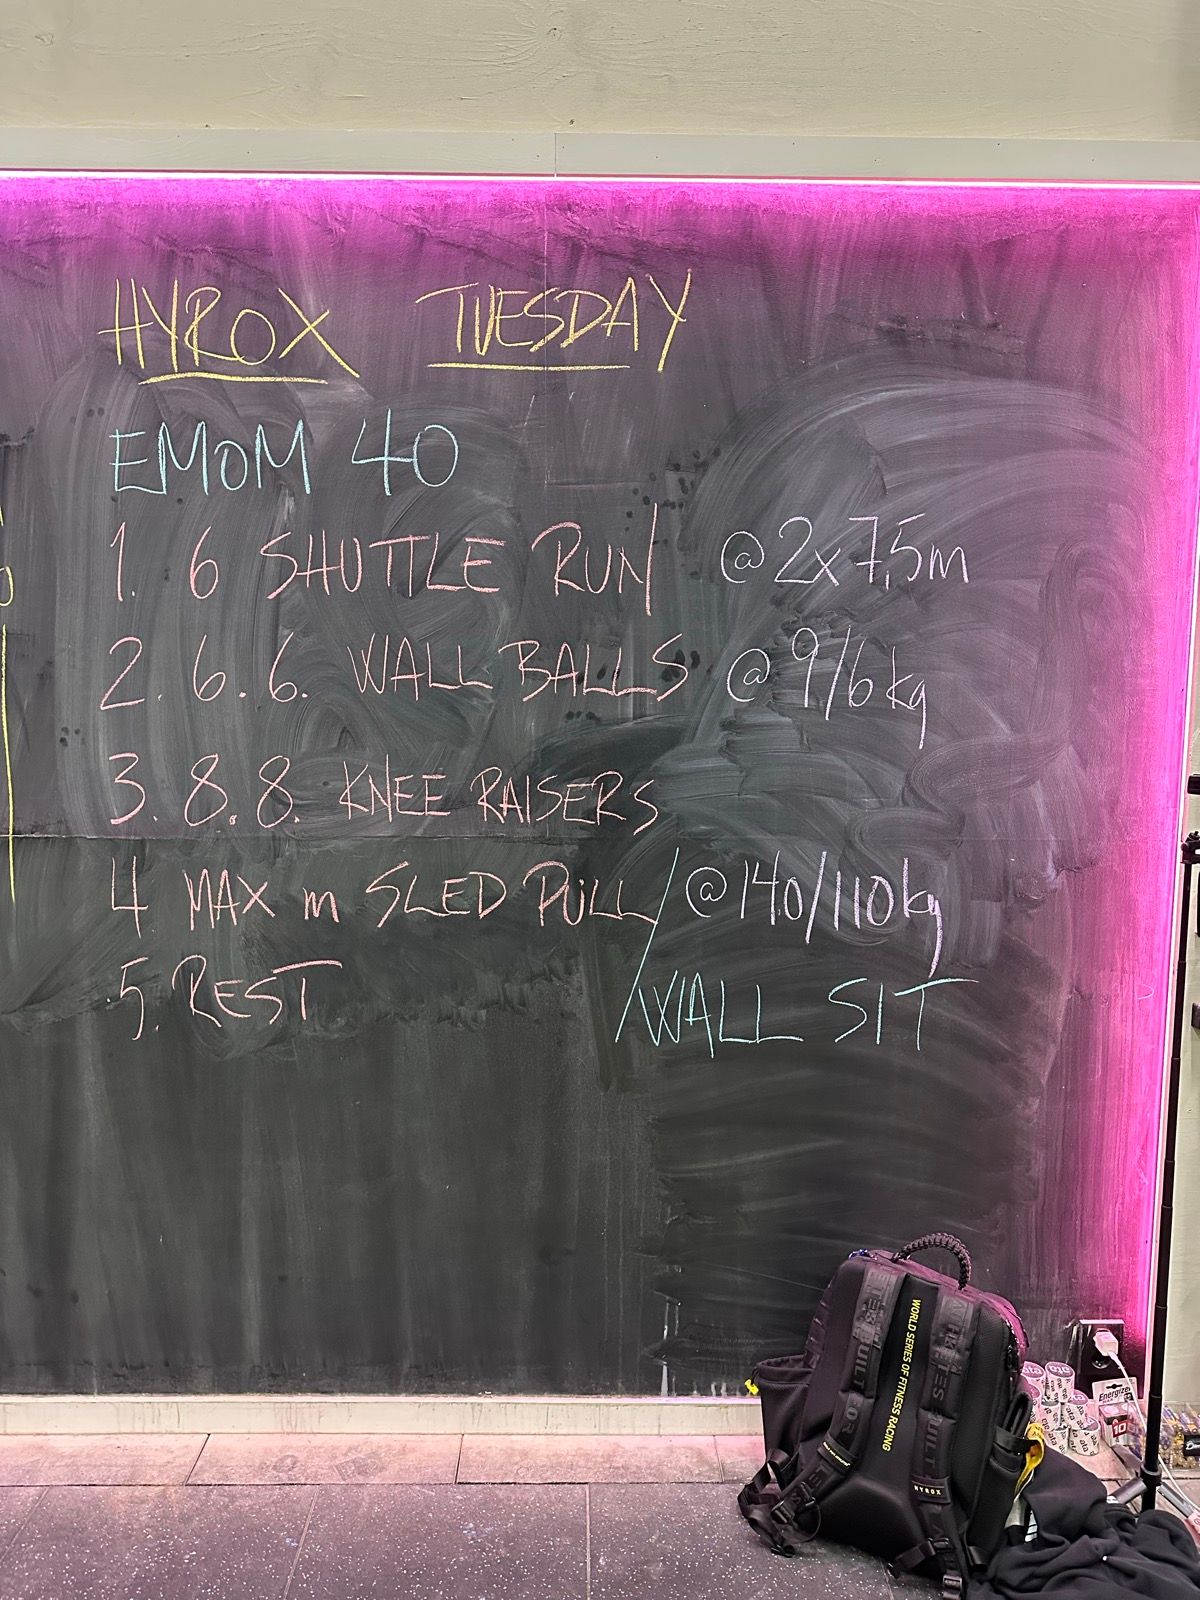 HYROX TUESDAY
EMOM 40
1. 6 SHUTTLE RUN @ 2x7,5m
2. 6.6. WALL BALLS @ 9/6 kg
3. 8.8. KNEE RAISERS
4 MAX m SLED PULL/ @ 140/110kg
5. REST /WALL SIT
WORLD SERIES OF FITNESS RACING
HYROX
ata
Energizer
10